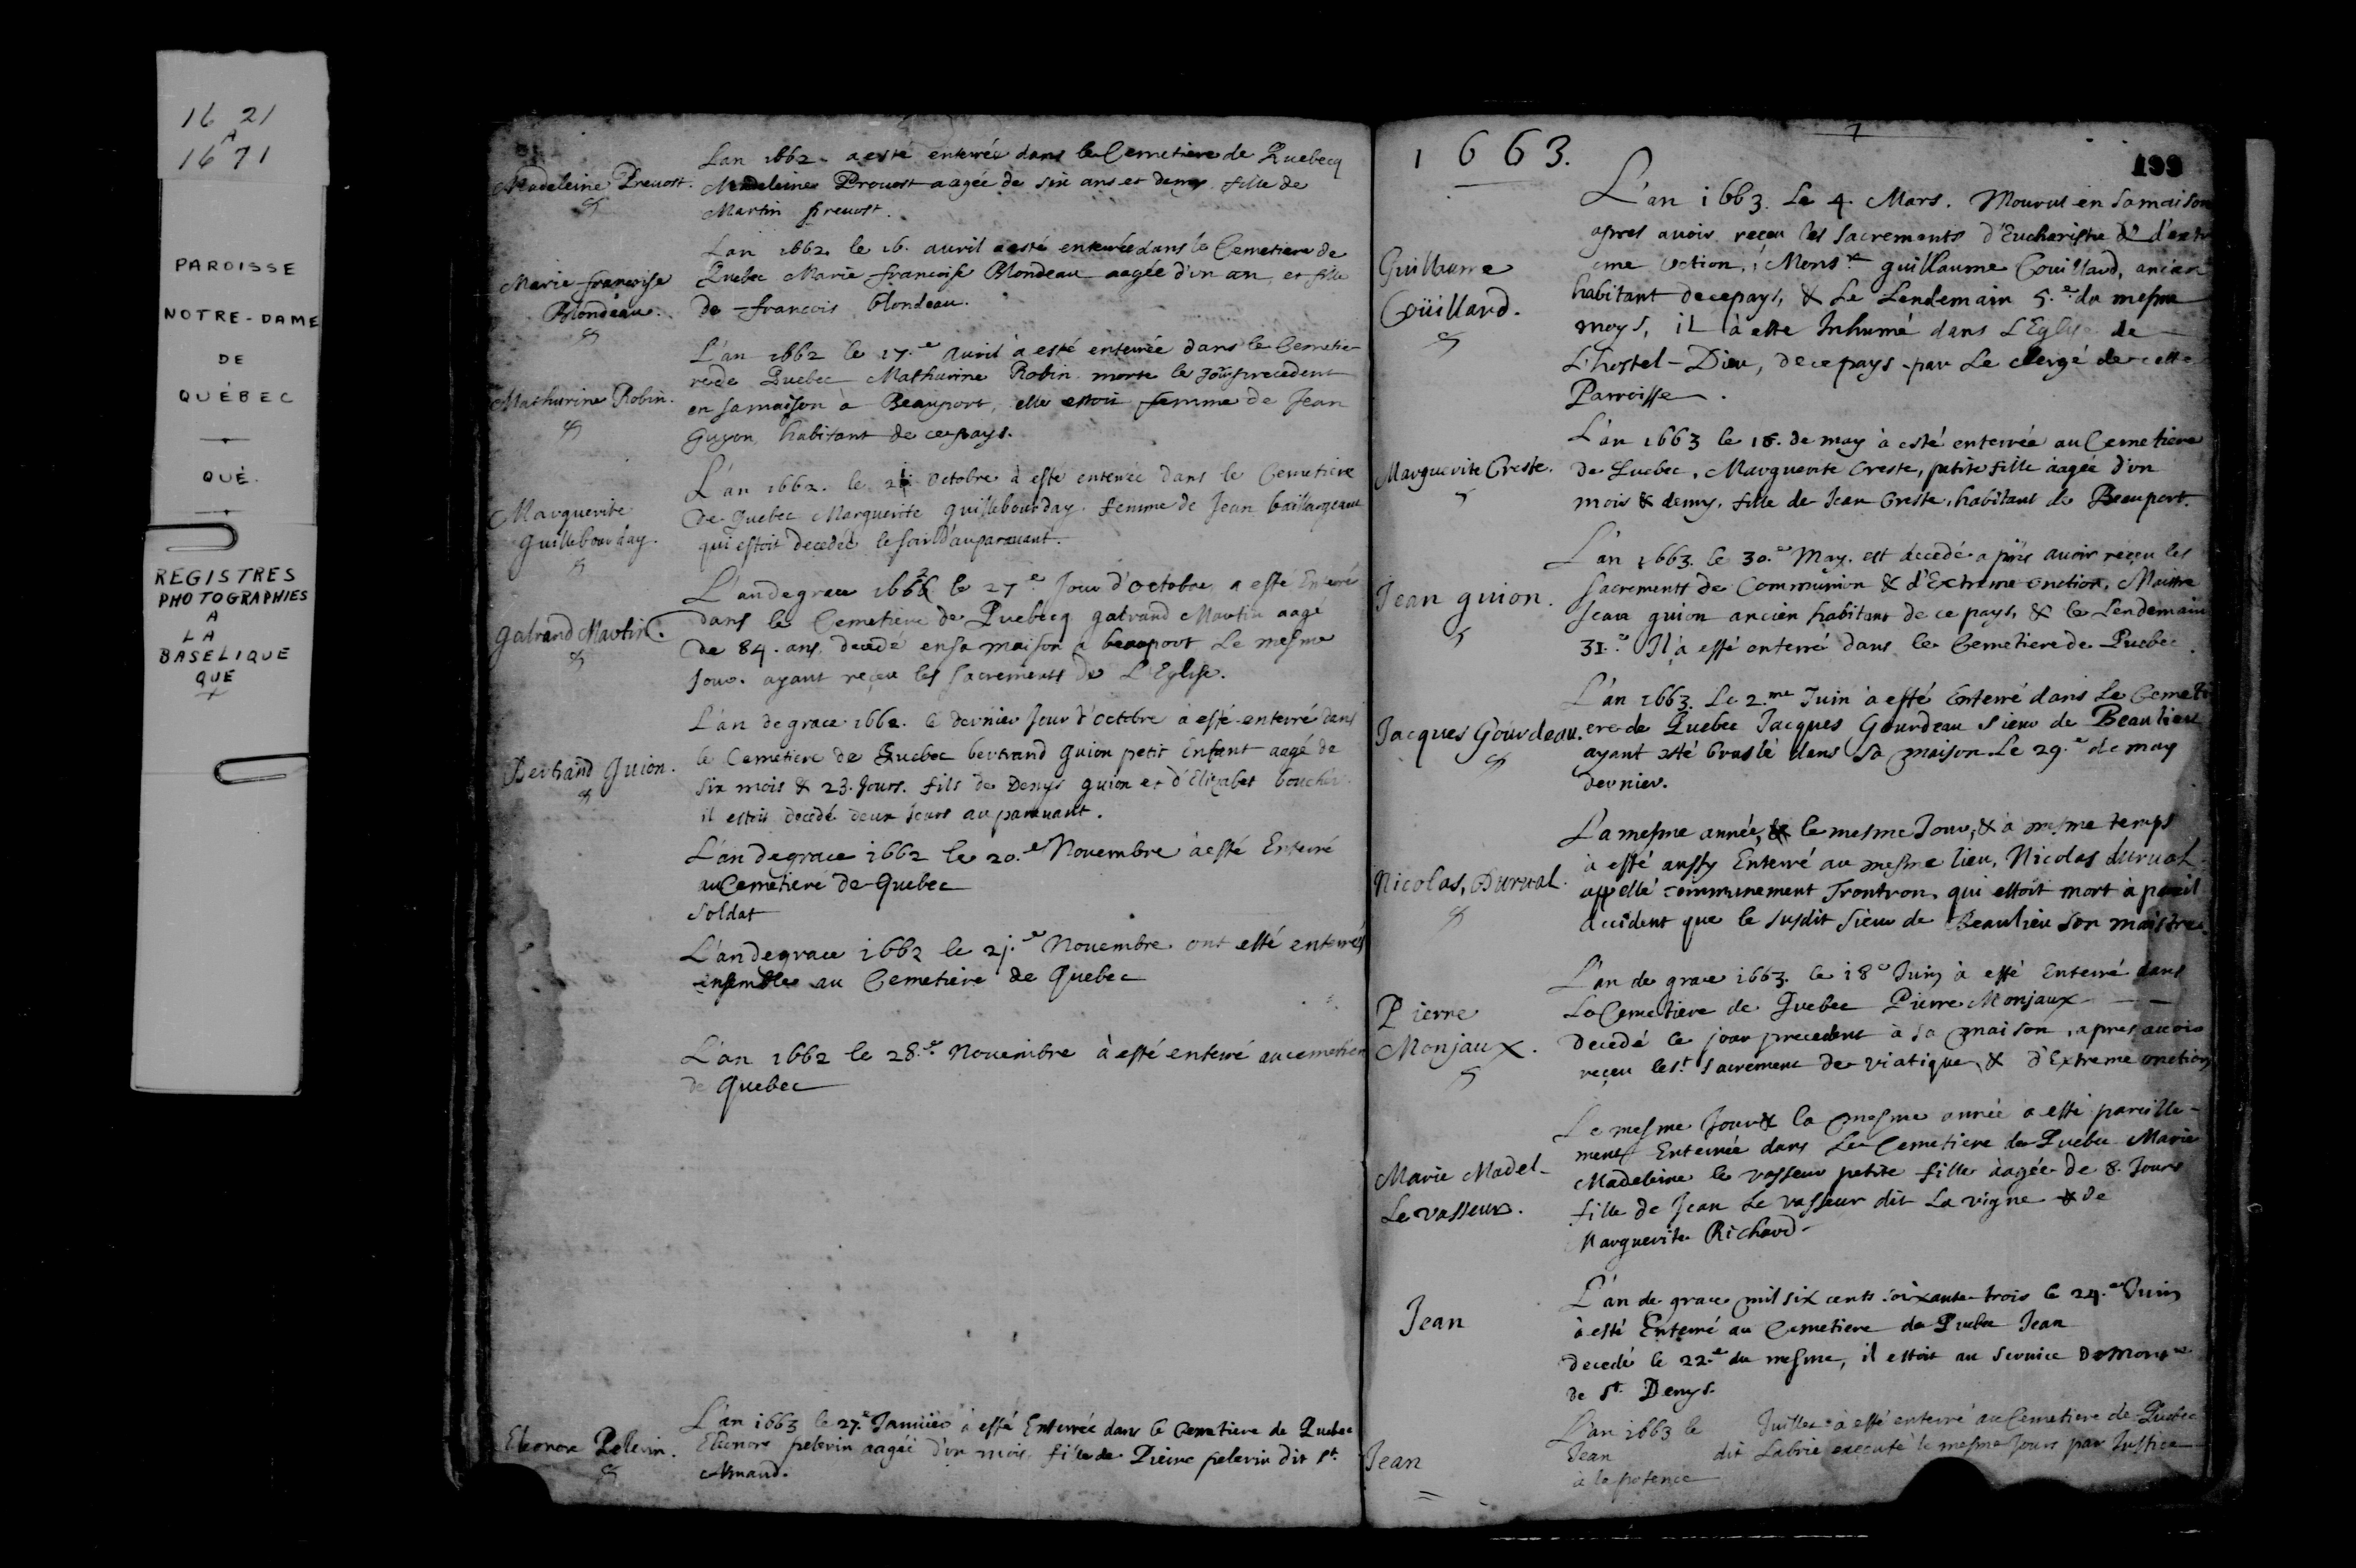 16 21
A
16 71
PAROISSE
NOTRE-DAME
DE
QUÉBEC
QUÉ.
REGISTRES
PHOTOGRAPHIES
A
LA
BASELIQUE
QUE
Madeleine Prevost.
Lan 1662 - a esté enterrée dans le Cemetiere de Quebecq
Madeleine Provost aagée de six ans et demy fille de
Martin prevost.
Marie françoise
Blondeau.
Lan 1662 le 16. auril a esté enterrée dans le Cemetiere de
Quebec Marie françoise Blondeau aagée d'un an, et fille
de françois blondeau.
Mathurine Robin.
L'an 1662 le 17.e Auril a esté enterrée dans le Cemetie-
re de Quebec Mathurine Robin morte le jour precedent
en sa maison à Beauport, elle estoit femme de Jean
Guyon habitant de ce pays.
Marguerite
Guillebourday.
L'an 1662. le octobre à esté enterrée dans le Cemetiere
de Quebec Marguerite guillebourday. femme de Jean baillargeaut
qui estoit decedée le soir d'auparauant.
Galrand Martin.
L'an de grace 1662 le 27.e Jour d'octobre a esté Enterré
dans le Cemetiere de Quebecq galrand Martin aagé
de 84. ans decedé en sa maison a beauport le mesme
Jour. ayant reçeu les sacrements de L'Eglise.
Bertrand Guion.
L'an de grace 1662. le dernier jour d'octobre à esté enterré dans
le Cemetiere de Quebec bertrand guion petit Enfant aagé de
six mois & 23. Jours. fils de Denys guion et d'Elizabet boucher
il estoit decedé deux jours auparauant.
L'an de grace 1662 le 20.e Nouembre à esté Enterré
au Cemetiere de Quebec
soldat
L'an de grace 1662 le 21.e Nouembre ont esté enterrés
insembles au Cemetiere de Quebec
L'an 1662 le 28.e Nouembre à esté enterré au cemetiere
de Quebec
Eleonore Pelerin.
L'an 1663 le 27.e Januier à esté Enterrée dans le Cemetiere de Quebec
Eleonore pelerin aagée d'un mois fille de Pierre pelerin dit St.
Amand.
1663.
199
Guillaume
Coüillard.
L'an 1663. Le 4. Mars. Mourut en sa maison
apres auoir reçeu les sacrements d'Eucharistie & d'extr
eme Onction, Monsr. guillaume Couillard, ancien
habitant de ce pays, & Le Lendemain 5.e du mesme
moys, il à este Inhumé dans L'Eglise de
L'hostel-Dieu, de ce pays par Le clergé de cette
Parroisse.
Marguerite Creste.
L'an 1663 le 18. de may à esté enterrée au Cemetiere
de Quebec, Marguerite Creste, petite fille aagée d'un
mois & demy, fille de Jean Creste, habitant de Beauport.
Jean guion.
L'an 1663. le 30.e May. est decedé apres auoir reçeu les
sacrements de Communion & d'Extreme onction, Maistre
Jean guion ancien habitant de ce pays, & le Lendemain
31.e Il à esté enterré dans le Cemetiere de Quebec.
Jacques Gourdeau.
L'an 1663. Le 2.me Juin à esté Enterré dans Le Cemeti
ere de Quebec Jacques Gourdeau Sieur de Beaulieu
ayant esté bruslé dans sa maison Le 29.e de may
dernier.
Nicolas, Durual.
La mesme année, & le mesme Jour, & à mesme temps
à esté aussy Enterré au mesme lieu, Nicolas durual
appellé communement Trontron, qui estoit mort à pareil
accident que le susdit sieur de Beaulieu son maistre.
Pierre
Monjaux.
L'an de grace 1663. le 18e Juin à esté Enterré dans
Le Cemetiere de Quebec Pierre Monjaux
Decedé le jour precedent à sa maison, apres auoir
reçeu le st. sacrement de viatique, & d'Extreme onction
Marie Madel-
Le vasseur.
Le mesme Jour & la mesme année à esté pareille-
ment Enterrée dans Le Cemetiere de Quebec Marie
Madeleine le vasseur petite fille aagée de 8. Jours
fille de Jean Le vasseur dit La vigne & de
Marguerite Richard.
Jean
L'an de grace mil six cents soixante trois le 24.e Juin
à esté Enterré au Cemetiere de Quebec Jean
decedé le 22.e du mesme, il estoit au seruice de Monsr
de St. Denys.
Jean
L'an 1663 le Juillet à esté enterré au Cemetiere de Quebec
Jean dit Labrie executé le mesme Jour par Justice
à la potence